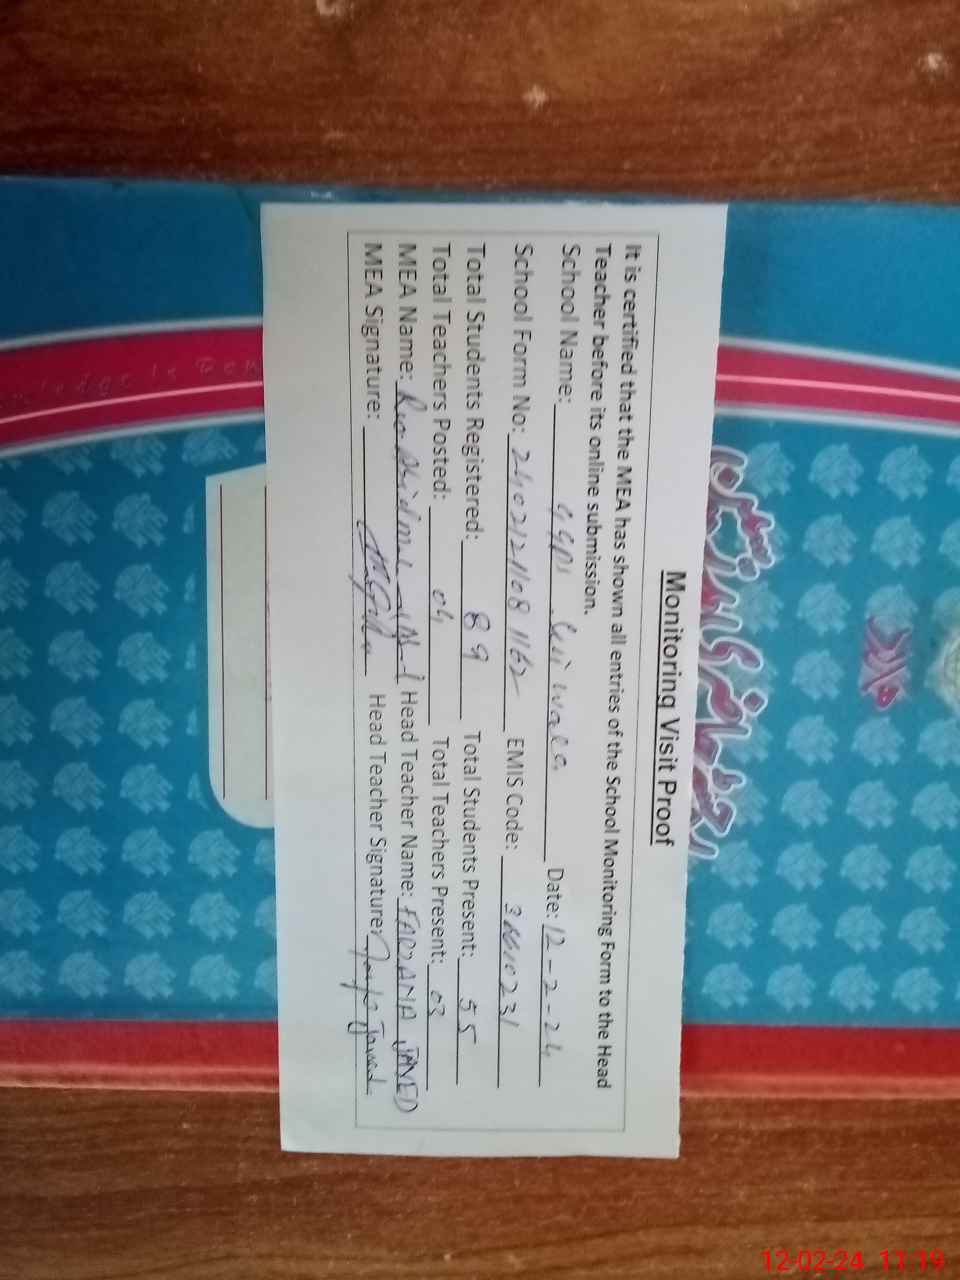 Monitoring Visit Proof
It is certified that the MEA has shown all entries of the School Monitoring Form to the Head
Teacher before its online submission.
School Name: wala Date: 12-2-24
School Form No: EMIS Code:
Total Students Registered: 89 Total Students Present: 55
Total Teachers Posted: 04 Total Teachers Present: 03
MEA Name: Head Teacher Name: FARZANA JAVED
MEA Signature: Head Teacher Signature: Javed
رجسٹر حاضری مدرسین
12-02-24 11:19